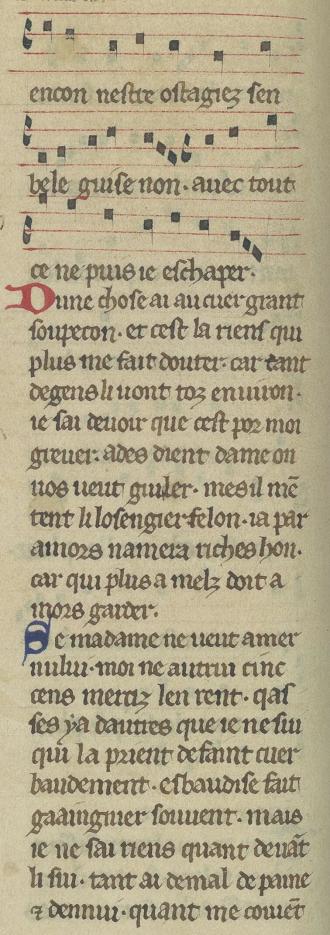 encon nestre ostagiez sen
bele guise non. auec tout
ce ne puis ie eschaper.
Dune chose ai au cuer grant
soupecon. et cest la riens qui
plus me fait douter. car tant
degens li uont toz enuiron.
ie sai deuoir que cest por moi
greuer. ades dient dame on
uos ueut guiler. mes il mẽ
tent li losengier felon. ia par
amors namera riches hon.
car qui plus a melz doit a
mors garder.
Se madame ne ueut amer
nului. moi ne autrui cinc
cens merciz len rent. qas
ses ya dautres que ie ne sui
qui la prient de faint cuer
baudement. esbaudise fait
gaaingnier souuent. mais
ie ne sai riens quant deuãt
li sui. tant ai demal de paine
⁊ dennui. quant me couẽt